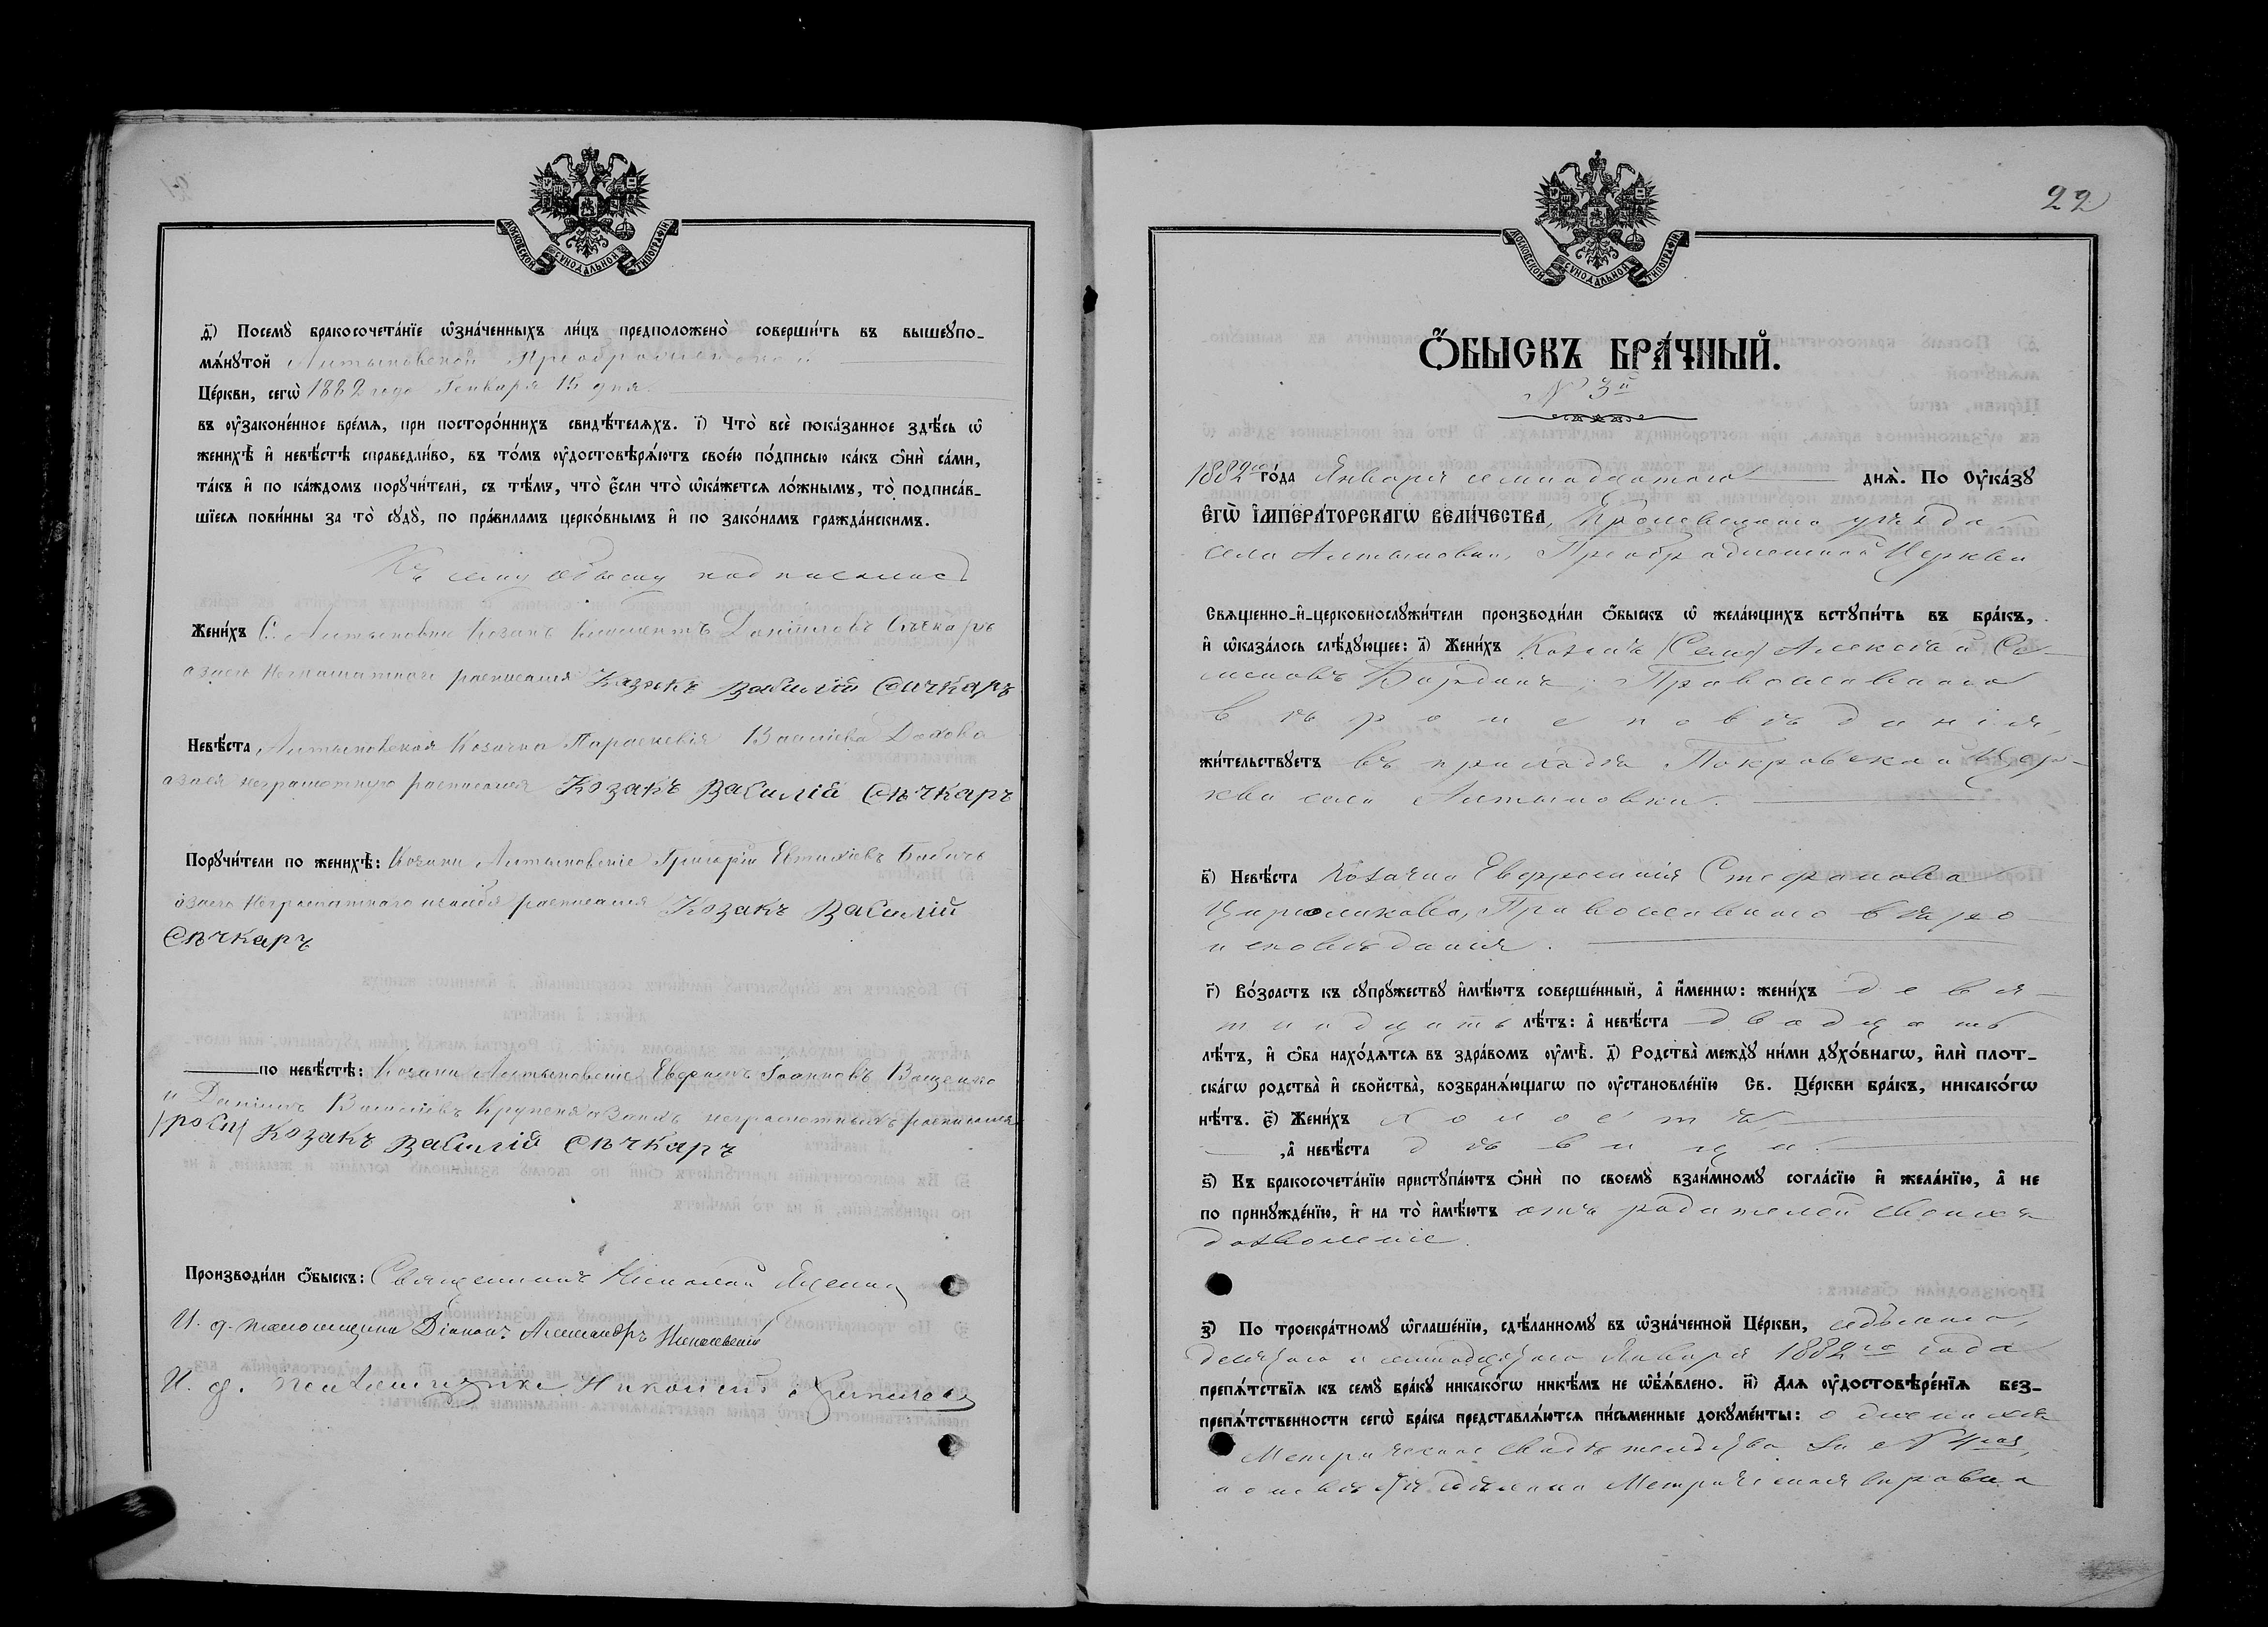 МОСКОВСКОЙ СУНОДАЛЬНОЙ ТИПОГРАФІИ
д҃і) Посемꙋ̀ бракосочета́нїе ѡ҆зна́ченныхъ ли́цъ предположено̀ соверши́ть въ вышеꙋпо-
мѧ́нꙋтой Алтыновской Преображенской
Це́ркви, сегѡ̀ 1882 года Генваря 15 дня
въ ᲂу҆законе́нное вре́мѧ, при посторо́ннихъ свидѣ́телѧхъ. і҃) Что̀ всѐ пока́занное здѣ́сь ѡ҆
женихѣ̀ и҆ невѣ́стѣ справедли́во, въ то́мъ ᲂу҆достовѣрѧ́ютъ свое́ю по́дписью ка́къ ѻ҆нѝ са́ми,
та́къ и҆ по ка́ждомъ порꙋчи́тели, съ тѣ́мъ, что̀ є҆́сли что̀ ѡ҆ка́жетсѧ ло́жнымъ, то̀ подписа́в-
шїесѧ пови́нны за то̀ сꙋдꙋ̀, по пра́виламъ церко́внымъ и҆ по зако́намъ гражда́нскимъ.
Къ сему обыску подписались
Жени́хъ С. Алтыновки Козакъ Климентъ Даніиловъ Сѣчкарь
а за его неграмотного росписался Казакъ Василій Сичкаръ
Невѣ́ста Алтыновская Козачка Параскевія Василіева
а за ея неграмотную росписался Козакъ Василій Сѣчкаръ
Порꙋчи́тели по женихѣ̀: Козаки Алтыновскіе Григорій Евтихіевъ Бабичъ
за его неграмотного росписался Козакъ Василій
Сѣчкаръ
по невѣ́стѣ: Козаки Алтыновскіе Іоанновъ Ващенко
и Даніилъ Василіевъ а за ихъ неграмотныхъ росписался
Козакъ Василій Сѣчкаръ
Производи́ли ѻ҆́быскъ: Священникъ Николай Яценко
И. д. псаломщика Діаконъ Александръ
И. д. псаломщика Николай
22
МОСКОВСКОЙ СУНОДАЛЬНОЙ ТИПОГРАФІИ
Ѻ҆́БЫСКЪ БРА́ЧНЫЙ.
№ 3й
1882го го́да Января семнадцатого днѧ̀. По Оу҆ка́зꙋ
Е҆гѡ̀ І҆мпера́торскагѡ Вели́чества, Кролевецкого уѣзда
села Алтыновки, Преображенской Церкви
Свѧще́нно-и҆-церковнослꙋжи́тели производи́ли ѻ҆́быскъ ѡ҆ жела́ющихъ встꙋпи́ть въ бра́къ,
и҆ ѡ҆каза́лось слѣ́дꙋющее: а҃) Жени́хъ Козакъ (Села) Алексѣй Се-
меновъ Православного
вѣроисповѣданія,
жи́тельствꙋетъ въ приходѣ Покровской Цер-
кви села Алтыновки.
в҃) Невѣ́ста Козачка Евфросинія Стефанова
Православного вѣро
исповѣданія.
г҃) Во́зрастъ къ сꙋпрꙋ́жествꙋ и҆мѣ́ютъ соверше́нный, а҆ и҆́меннѡ: жени́хъ девя-
тнадцать лѣ́тъ: а҆ невѣ́ста двадцать
лѣ́тъ, и҆ ѻ҆́ба нахо́дѧтсѧ въ здра́вомъ ᲂу҆мѣ̀. д҃) Родства̀ междꙋ̀ ни́ми дꙋхо́внагѡ, и҆лѝ плот-
ска́гѡ родства̀ и҆ свойства̀, возбранѧ́ющагѡ по ᲂу҆становле́нїю Св. Це́ркви бра́къ, никако́гѡ
нѣ́тъ. є҃) Жени́хъ холостъ
,а҆ невѣ́ста дѣвица.
ѕ҃) Къ бракосочета́нїю пристꙋпа́ютъ ѻ҆нѝ по своемꙋ̀ взаи́мномꙋ согла́сїю и҆ жела́нїю, а҆ не
по принꙋжде́нїю, и҆ на то̀ и҆мѣ́ютъ отъ родителей своихъ
дозволеніе.
з҃) По троекра́тномꙋ ѡ҆глаше́нїю, сдѣ́ланномꙋ въ ѡ҆зна́ченной Це́ркви, седьмого,
десятого и семнадцатого Января 1882го года
препѧ́тствїѧ къ семꙋ̀ бра́кꙋ никако́гѡ никѣ́мъ не ѡ҆б̾ѧ́влено. и҃) Длѧ ᲂу҆достовѣре́нїѧ без-
препѧ́тственности сегѡ̀ бра́ка представлѧ́ютсѧ пи́сьменные докꙋме́нты: о женихѣ
Метрическое свидѣтельство за №
а о невѣстѣ сдѣлана Метрическая справка